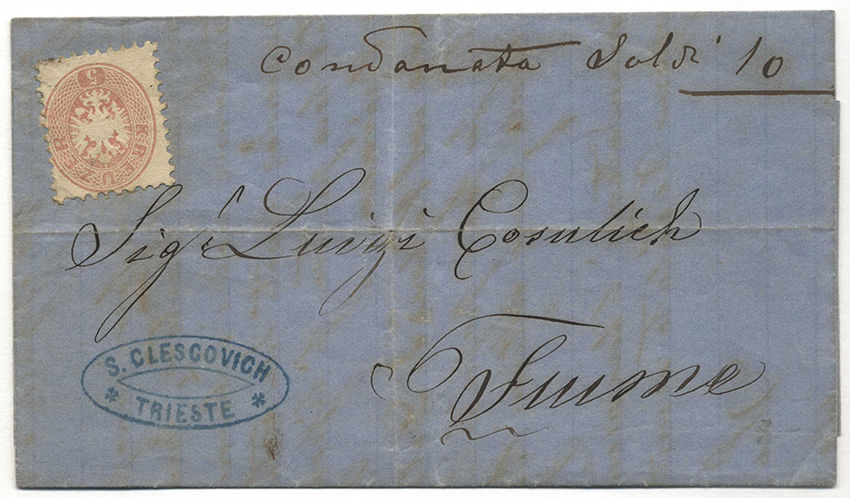 Condanata Soldi 10
5
KREUZER
Sig.r Luigi Cosulich
Fiume
S. CLESCOVICH
* TRIESTE *